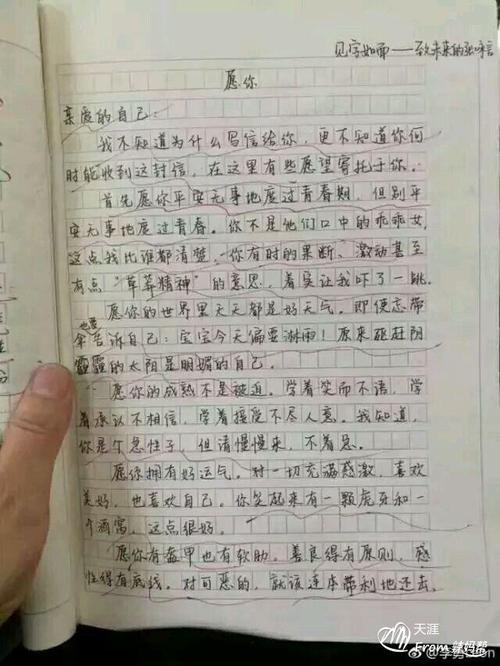 见字如面——致未来的张啼言
愿你
亲爱的自己:
我不知道为什么写信给你,更不知道你何
时能收到这封信,在这里有些愿望寄托于你。
首先愿你平安无事地度过青春期,但别平
安无事地度过青春。你不是他们口中的乖乖女,
这点我比谁都清楚。你有时的果断、激动甚至
有点“草莽精神”的意思,着实让我吓了一跳。
愿你的世界里天天都是好天气。即使忘带
伞也要告诉自己:宝宝今天偏要淋雨!原来驱赶阴
霾的太阳是明媚的自己。
愿你的成熟不是被迫。学着笑而不语,学
着承认不相信,学着接受不尽人意。我知道,
你是个急性子,但请慢慢来,不着急。
愿你拥有好运气。对一切充满感激,喜欢
美好,也喜欢自己。你笑起来有一颗虎牙和一
个酒窝,这点很好。
愿你有盔甲也有软肋。善良得有原则,感
性得有底线。对可恶的,就该连本带利地还去。
天涯
From